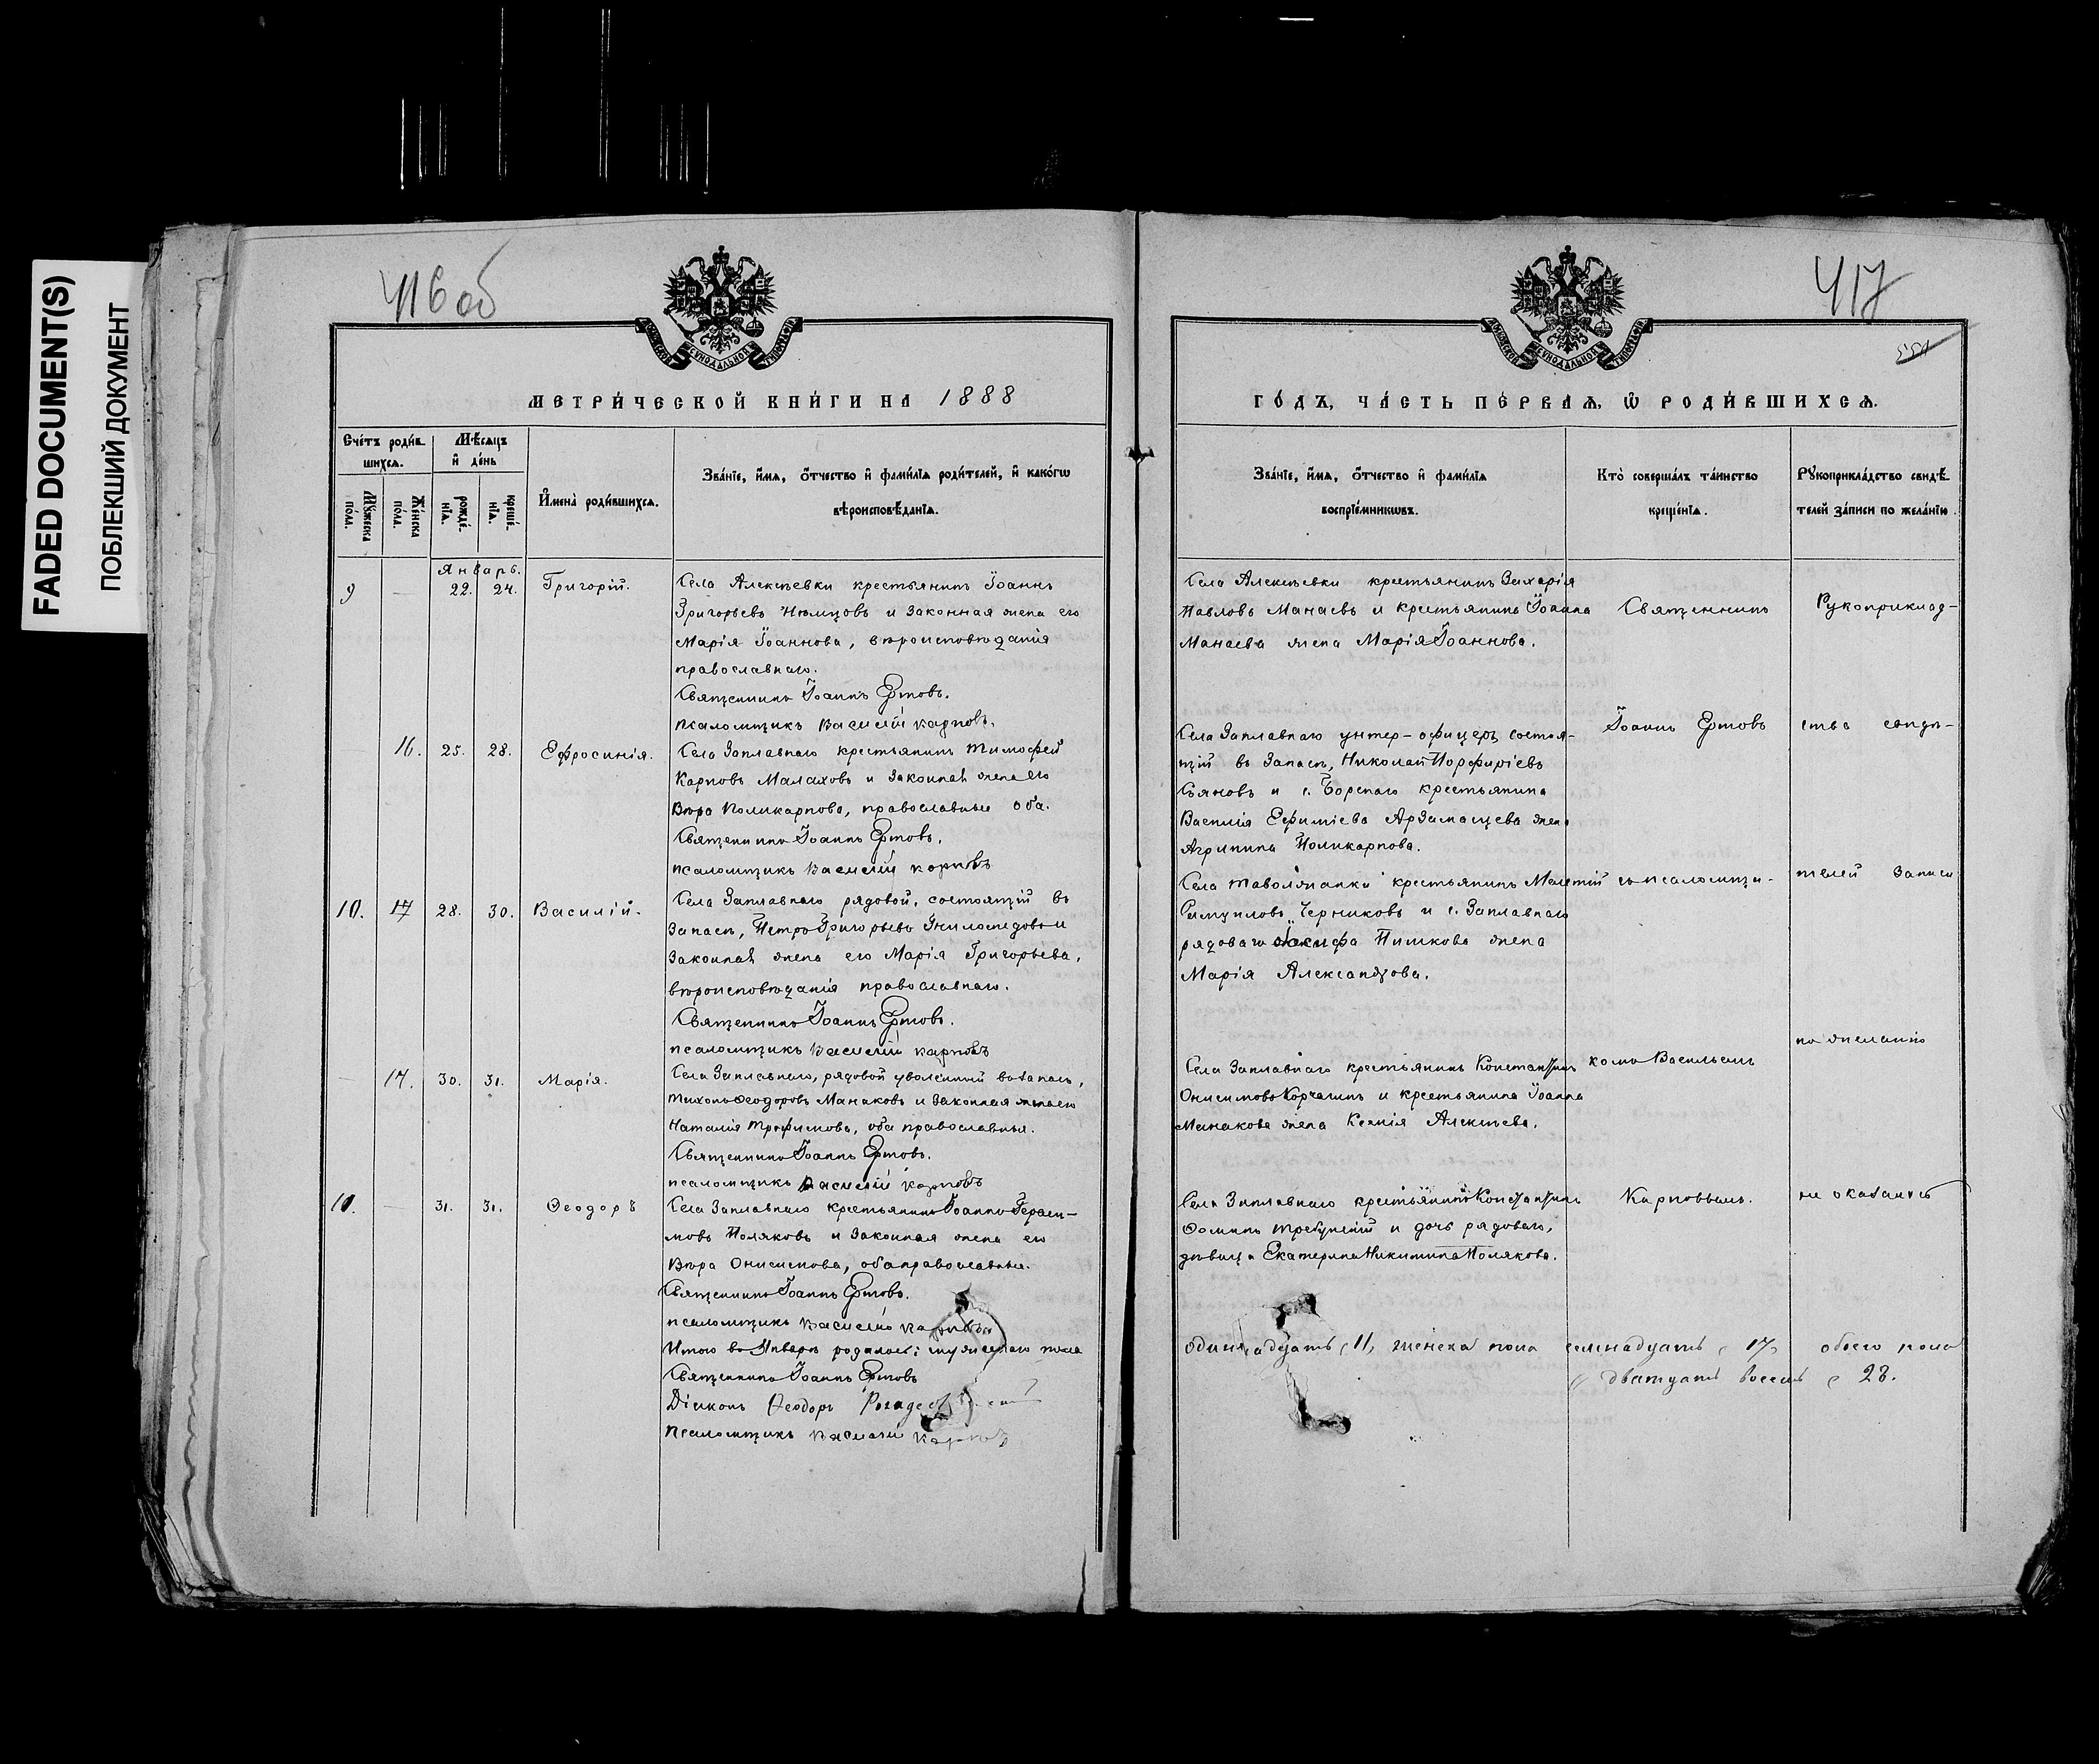 FADED DOCUMENT(S)
ПОБЛЕКШИЙ ДОКУМЕНТ
416 об
МЕТРИ́ЧЕСКОЙ КНИ́ГИ НА 1888
Сче́тъ роди́в
шихсѧ.
Мѣ́сѧцъ
и҆ де́нь
Мꙋ́жеска
по́ла.
Же́нска
по́ла.
рожде́
нїѧ.
креще́
нїѧ.
И҆мена̀ роди́вшихсѧ.
Зва́нїе, и҆́мѧ, ѻ҆́тчество и҆ фами́лїѧ роди́телей, и҆ како́гѡ
вѣроисповѣ́данїѧ.
Январь.
9 — 22. 24. Григорій.
Села Алексѣевки крестьянинъ Іоаннъ
Григорьевъ и законная жена его
Марія Іоаннова, вѣроисповѣданія
православнаго.
Священникъ Іоаннъ Ертовъ.
псаломщикъ Василій Карповъ.
16. 25. 28. Ефросинія.
Села Заплавнаго крестьянинъ Тимофей
Карповъ Малаховъ и законная жена его
Вѣра Поликарпова, православные оба.
Священникъ Іоаннъ Ертовъ.
псаломщикъ Василій Карповъ
10. 17 28. 30. Василій.
Села Заплавнаго рядовой, состоящій въ
запасѣ, Петръ Григорьевъ и
законная жена его Марія Григорьева,
вѣроисповѣданія православнаго.
Священникъ Іоаннъ Ертовъ.
псаломщикъ Василій Карповъ
— 17. 30. 31. Марія.
Села Заплавнаго, рядовой уволенный въ запасъ,
Тихонъ Ѳеодоровъ Манаковъ и законная жена его
Наталія Трофимова, оба православные.
Священникъ Іоаннъ Ертовъ.
псаломщикъ Василій Карповъ
11. — 31. 31. Ѳеодоръ
Села Заплавнаго крестьянинъ Іоаннъ Гераси-
мовъ Поляковъ и законная жена его
Вѣра Онисимова, оба православные.
Священникъ Іоаннъ Ертовъ.
псаломщикъ Василій Карповъ
Итого въ Январѣ родилось: мужескаго пола
Священникъ Іоаннъ Ертовъ
Діаконъ Ѳеодоръ
Псаломщикъ Василій Карповъ
417
551
ГО́ДЪ, ЧА́СТЬ ПЕ́РВАѦ, Ѡ҆ РОДИ́ВШИХСѦ.
Зва́нїе, и҆́мѧ, ѻ҆́тчество и҆ фами́лїѧ
воспрїе́мникѡвъ.
Кто̀ соверша́лъ та́инство
креще́нїѧ.
Рꙋкоприкла́дство свидѣ́
телей за́писи по жела́нїю.
Села Алексѣевки крестьянинъ Захарія
Павловъ Манаевъ и крестьянина Іоанна
Манаева жена Марія Іоаннова.
Села Заплавнаго унтер-офицеръ состоя-
щій въ запасѣ, Николай Порфиріевъ
и с. Борскаго крестьянина
Василія Ефиміева Арзамасцева жена
Агрипина Поликарпова.
Села Таволжанки крестьянинъ Мелетій
Черниковъ и с. Заплавнаго
рядоваго Пишкова жена
Марія Александрова.
Села Заплавнаго крестьянинъ Константинъ
Онисимовъ Корчагинъ и крестьянина Іоанна
Манакова жена Ксенія Алексѣева.
Села Заплавнаго крестьянинъ Константинъ
Ѳоминъ и дочь рядоваго,
дѣвица Екатерина Никитина Полякова.
Священникъ
Іоаннъ Ертовъ
съ псаломщи-
комъ Васильемъ
Карповымъ.
Рукоприклад-
ства свидѣ-
телей записи
по желанію
не оказалось
одиннадцать (11) женска пола семнадцать (17) обоего пола
двадцать восемь (28.